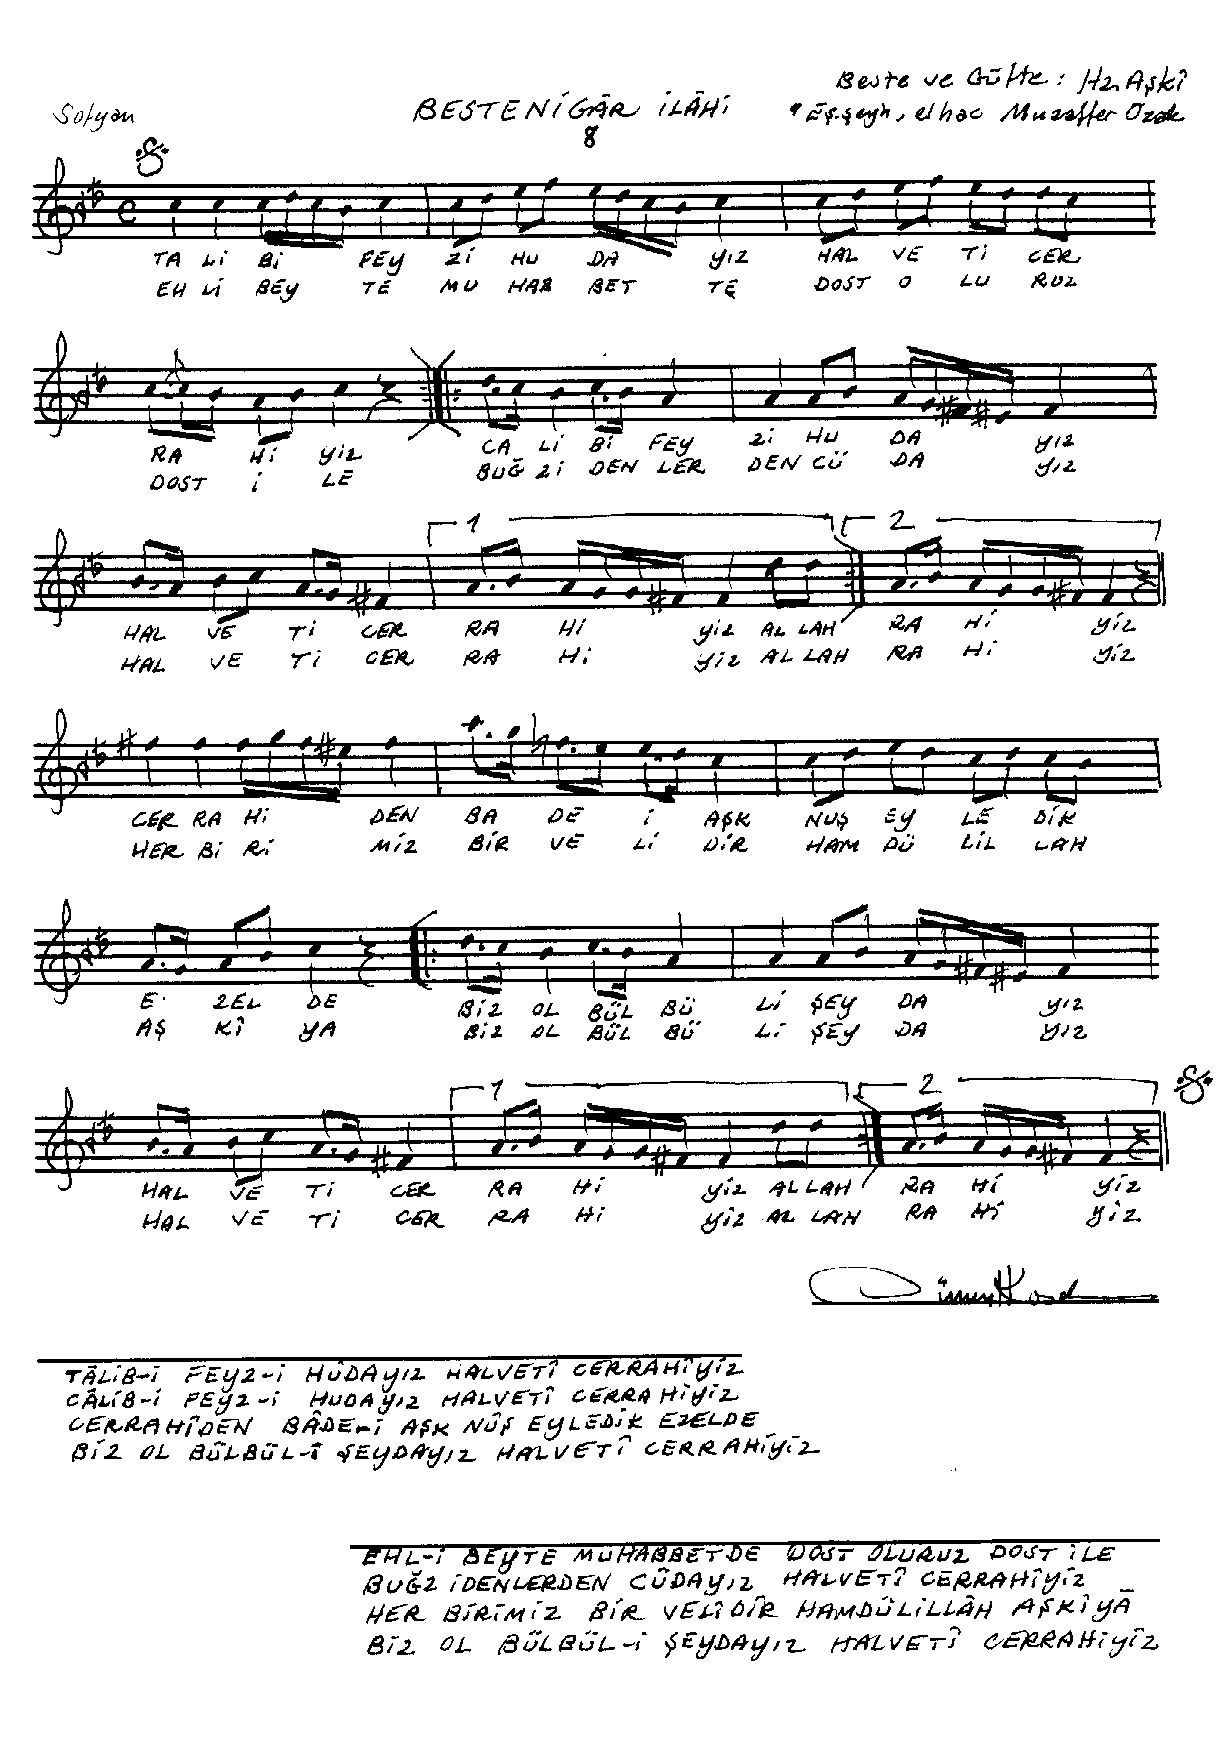 Beste ve Güfte : Hz. Aşkî
Sofyan
BESTENİGÂR İLÂHİ
Eş.şeyh, elhac Muzaffer Özak
8
TA Lİ Bİ FEY Zİ HU DA YIZ HAL VE Tİ CER
EH Lİ BEY TE MU HAB BET TE DOST O LU RUZ
RA Hİ YİZ CA Lİ Bİ FEY Zİ HU DA YIZ
DOST İ LE BUĞ Zİ DEN LER DEN CÜ DA YIZ
1 2
HAL VE Tİ CER RA Hİ YİZ AL LAH RA Hİ YİZ
HAL VE Tİ CER RA Hİ YİZ AL LAH RA Hİ YİZ
CER RA Hİ DEN BA DE İ AŞK NUŞ EY LE DİK
HER Bİ Rİ MİZ BİR VE Lİ DİR HAM DÜ LİL LAH
E ZEL DE BİZ OL BÜL BÜ Lİ ŞEY DA YIZ
AŞ KÎ YA BİZ OL BÜL BÜ Lİ ŞEY DA YIZ
1 2
HAL VE Tİ CER RA Hİ YİZ AL LAH RA Hİ YİZ
HAL VE Tİ CER RA Hİ YİZ AL LAH RA Hİ YİZ
TÂLİB-İ FEYZ-İ HÛDAYIZ HALVETÎ CERRAHÎYİZ
CÂLİB-İ FEYZ-İ HUDAYIZ HALVETÎ CERRAHİYİZ
CERRAHÎDEN BÂDE-İ AŞK NÛŞ EYLEDİK EZELDE
BİZ OL BÜLBÜL-Î ŞEYDAYIZ HALVETÎ CERRAHİYİZ
EHL-İ BEYTE MUHABBETDE DOST OLURUZ DOST İLE
BUĞZ İDENLERDEN CÛDAYIZ HALVETÎ CERRAHİYİZ
HER BİRİMİZ BİR VELÎDİR HAMDÜLİLLÂH AŞKÎYÂ
BİZ OL BÜLBÜL-İ ŞEYDAYIZ HALVETÎ CERRAHİYİZ